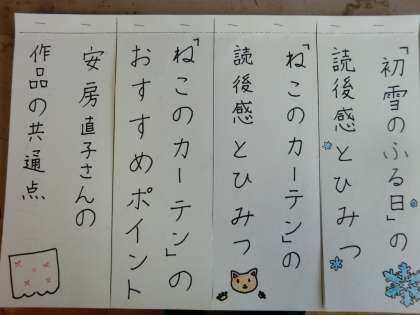 「初雪のふる日」の
読後感とひみつ
「ねこのカーテン」の
読後感とひみつ
「ねこのカーテン」の
おすすめポイント
安房直子さんの
作品の共通点